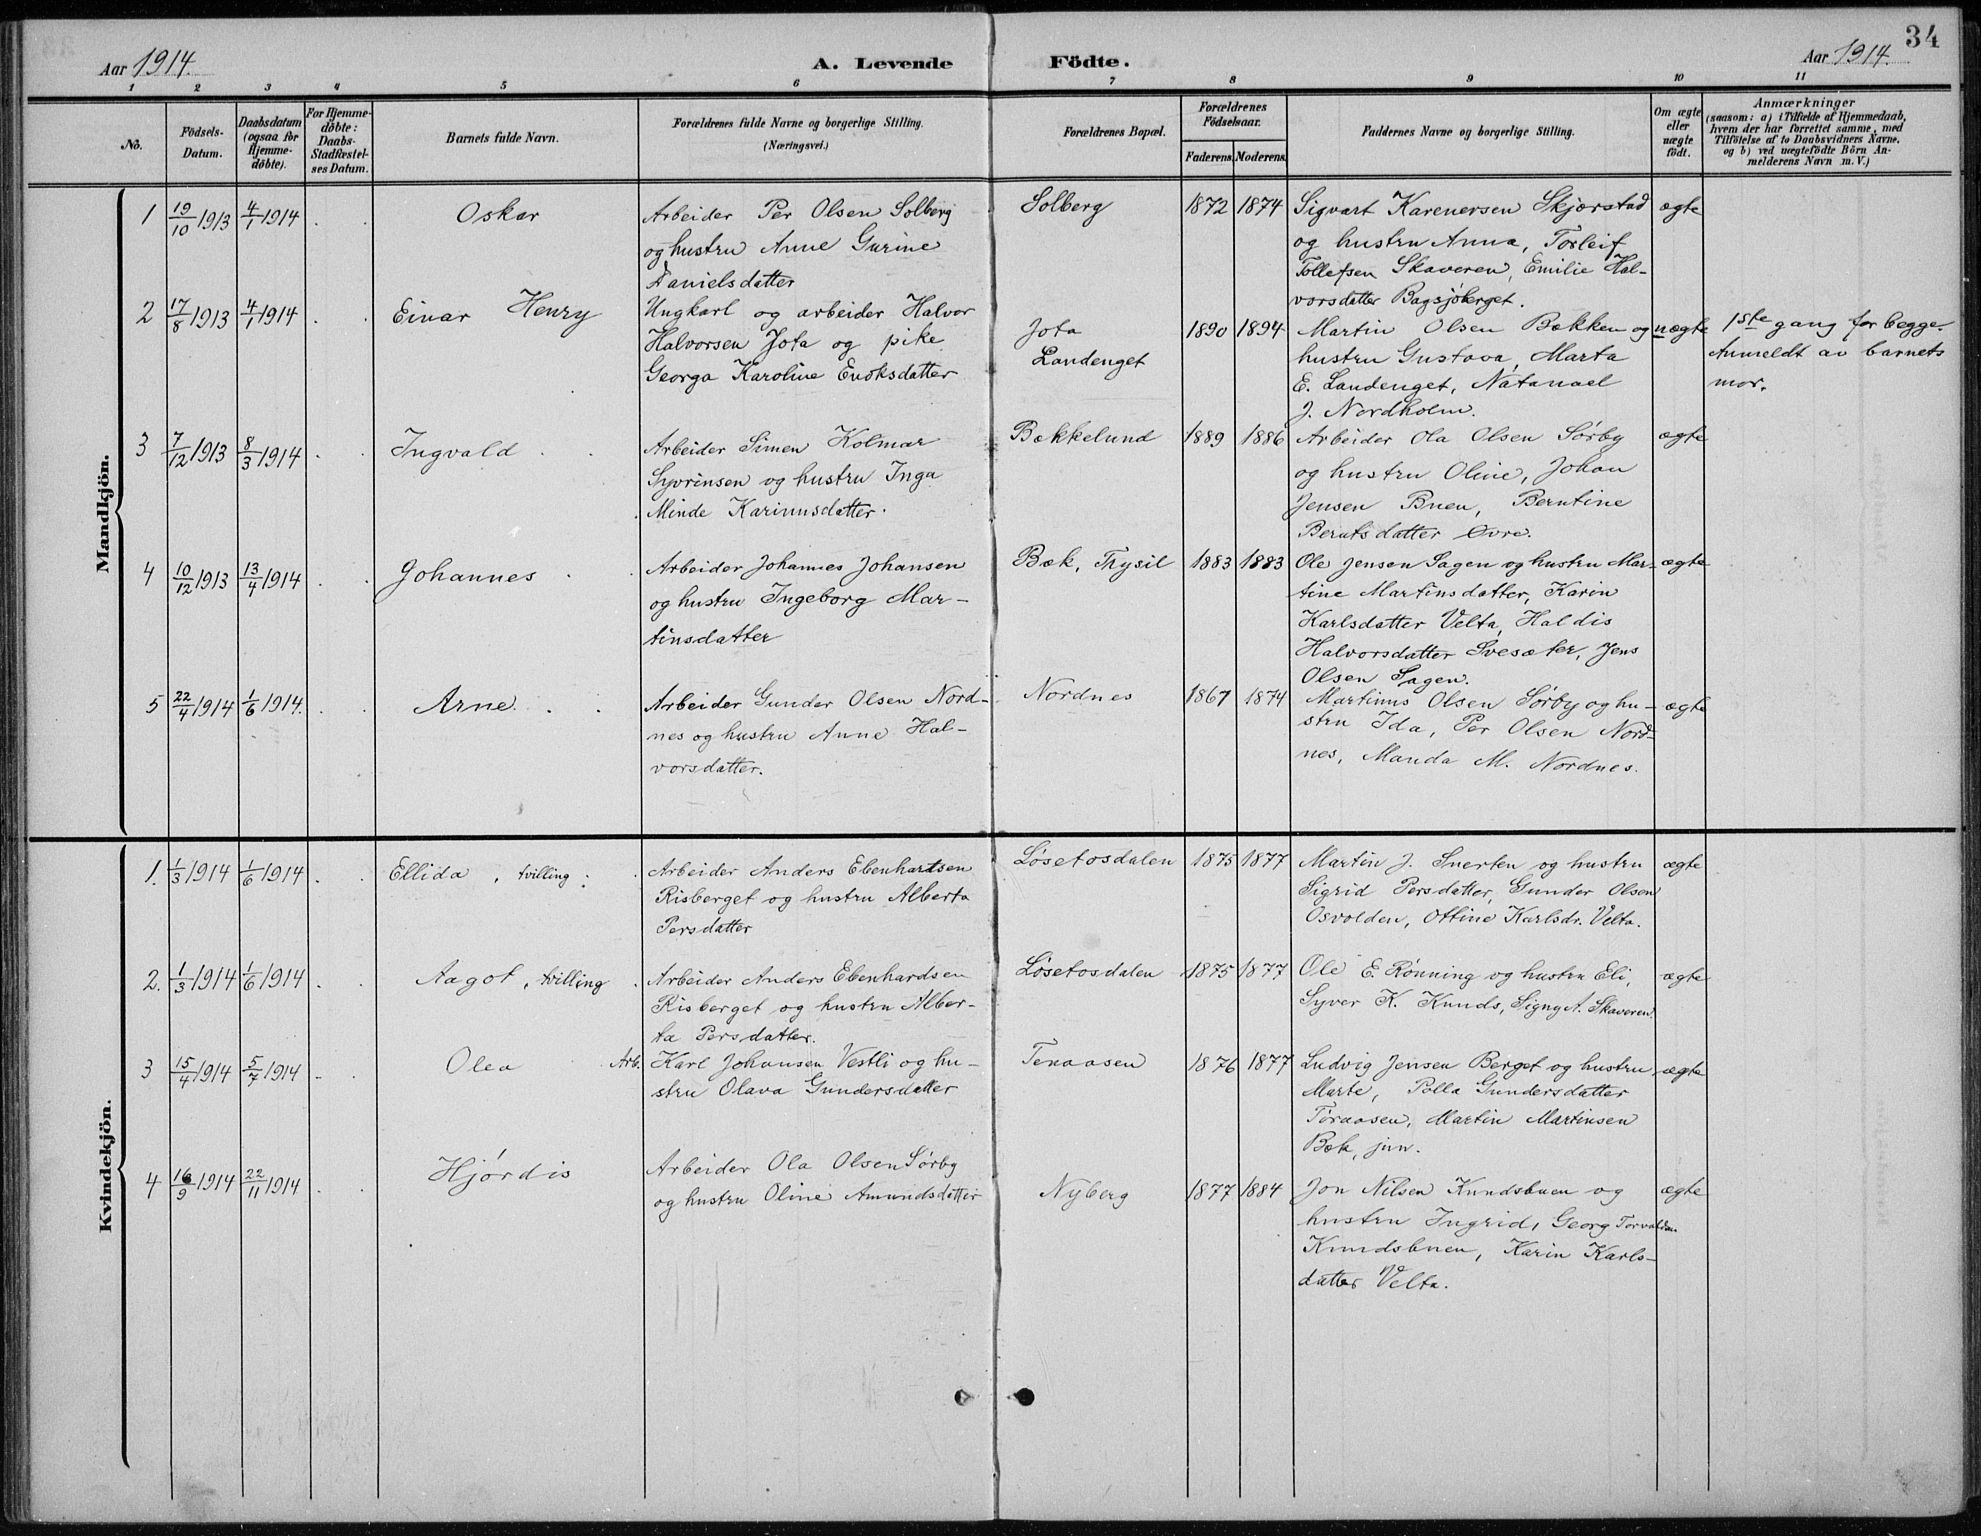 34
Aar 1914.
A. Levende Födte.
Aar 1914.
1 2 3 4 5 6 7 8 9 10 11
No.
Födsels-Datum.
Daabsdatum (ogsaa for Hjemmedöbte).
For Hjemmedöbte: Daabs-Stadfæstelses Datum.
Barnets fulde Navn.
Forældrenes fulde Navne og borgerlige Stilling.
(Næringsvei.)
Forældrenes Bopæl.
Forældrenes Födselsaar.
Faderens. Moderens.
Faddernes Navne og borgerlige Stilling.
Om ægte eller uægte födt.
Anmærkninger
(saasom: a) i Tilfælde af Hjemmedaab,
hvem der har forrettet samme, med
Tilföielse af to Daabsvidners Navne.
og b) ved uægtefödte Börn An-
melderens Navn m. V.)
Mandkjön.
1 19/10 1913 4/1 1914 Oskar
Arbeider Per Olsen Solberg
og hustru Anne Gurine
Danielsdatter
Solberg 1872 1874
Sigvart Karenersen Skjærstad
og hustru Anna, Torleif
Tollefsen Skaveren, Emilie Hal-
vorsdatter Bagsjøberget.
ægte
2 17/8 1913 4/1 1914 Einar Henry
Ungkarl og arbeider Halvor
Halvorsen Jota og pike
Georga Karoline Enoksdatter
Jota
Landenget
1890 1894
Martin Olsen Bækken og
hustru Gustava, Marta
E. Landenget, Natanael
J. Nordholm.
uægte
1ste gang for begge.
Anmeldt av barnets
mor.
3 7/12 1913 8/3 1914 Ingvald
Arbeider Simen Kolmar
Syvrinsen og hustru Inga
Minde Karinusdatter.
Bækkelund 1889 1886
Arbeider Ola Olsen Sørby
og hustru Oline, Johan
Jensen Buen, Berntine
Berntsdatter Øvre.
ægte
4 10/12 1913 13/4 1914 Johannes
Arbeider Johannes Johansen
og hustru Ingeborg Mar-
tinsdatter
Bæk, Trysil 1883 1883
Ole Jensen Sagen og hustru Mar-
tine Martinsdatter, Karin
Karlsdatter Velta, Haldis
Halvorsdatter Svesæter, Jens
Olsen Sagen.
ægte
5 22/4 1914 1/6 1914. Arne
Arbeider Gunder Olsen Nord-
nes og hustru Anne Hal-
vorsdatter.
Nordnes 1867 1874
Martinus Olsen Sørby og hu-
stru Ida, Per Olsen Nord-
nes, Manda M. Nordnes.
ægte
Kvindekjön.
1. 1/3 1914 1/6 1914 Ellida, tvilling
Arbeider Anders Ebenhardtsen
Risberget og hustru Alberta
Persdatter
Løsetosdalen 1875 1877
Martin J. Snerten og hustru
Sigrid Persdatter, Gunder Olsen
Osvolden, Ottine Karlsdr. Velta.
ægte
2. 1/3 1914 1/6 1914 Aagot, tvilling
Arbeider Anders Ebenhardsen
Risberget og hustru Alber-
ta Persdatter.
Løsetosdalen 1875 1877
Ole E. Rønning og hustru Eli,
Syver K. Knuds, Signy A. Skaveren.
ægte
3 15/4 1914 5/7 1914 Olea
Arb. Karl Johansen Vestli og hu-
stru Olava Gundersdatter
Tenaasen 1876 1877
Ludvig Jensen Berget og hustru
Marte, Polla Gundersdatter
Toraasen, Martin Martinsen
Bæk, jun.
ægte
4 16/9 1914 22/11 1914 Hjørdis
Arbeider Ola Olsen Sørby
og hustru Oline Amundsdatter
Nyberg 1877 1884
Jon Nilsen Knudsbuen og
hustru Ingrid, Georg Torvaldsen
Knudsbuen, Karin Karls-
datter Velta.
ægte